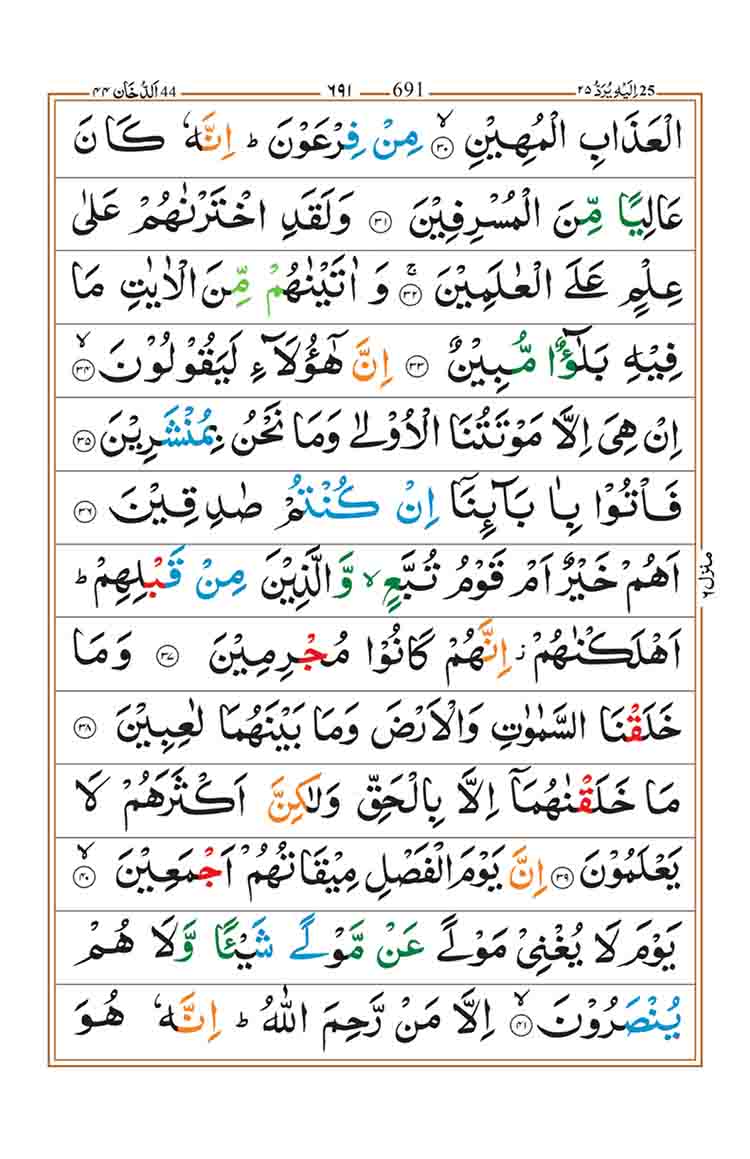 اَلدُّخَان 44 ۴۴ ــ ۶۹۱ ــ 691 ــ اِلَيْهِ يُرَدُّ 25 ۲۵
الْعَذَابِ الْمُهِيْنِ ۙ‏﴿۳۰﴾ مِنْ فِرْعَوْنَ ؕ اِنَّهٗ كَانَ
عَالِيًا مِّنَ الْمُسْرِفِيْنَ ﴿۳۱﴾ وَلَقَدِ اخْتَرْنٰهُمْ عَلٰى
عِلْمٍ عَلَى الْعٰلَمِيْنَ ۚ‏﴿۳۲﴾ وَ اٰتَيْنٰهُمْ مِّنَ الْاٰيٰتِ مَا
فِيْهِ بَلٰٓؤٌا مُّبِيْنٌ ﴿۳۳﴾ اِنَّ هٰٓؤُلَآءِ لَيَقُوْلُوْنَ ۙ‏﴿۳۴﴾
اِنْ هِىَ اِلَّا مَوْتَتُنَا الْاُوْلٰى وَمَا نَحْنُ بِمُنْشَرِيْنَ ﴿۳۵﴾
فَاْتُوْا بِاٰبَآئِنَاۤ اِنْ كُنْتُمْ صٰدِقِيْنَ ﴿۳۶﴾
اَهُمْ خَيْرٌ اَمْ قَوْمُ تُبَّعٍ ۙ وَّالَّذِيْنَ مِنْ قَبْلِهِمْ ؕ
اَهْلَكْنٰهُمْ ز اِنَّهُمْ كَانُوْا مُجْرِمِيْنَ ﴿۳۷﴾ وَمَا
خَلَقْنَا السَّمٰوٰتِ وَالْاَرْضَ وَمَا بَيْنَهُمَا لٰعِبِيْنَ ﴿۳۸﴾
مَا خَلَقْنٰهُمَاۤ اِلَّا بِالْحَقِّ وَلٰكِنَّ اَكْثَرَهُمْ لَا
يَعْلَمُوْنَ ﴿۳۹﴾ اِنَّ يَوْمَ الْفَصْلِ مِيْقَاتُهُمْ اَجْمَعِيْنَ ۙ‏﴿۴۰﴾
يَوْمَ لَا يُغْنِىْ مَوْلًى عَنْ مَّوْلًى شَيْئًا وَّلَا هُمْ
يُنْصَرُوْنَ ۙ‏﴿۴۱﴾ اِلَّا مَنْ رَّحِمَ اللّٰهُ ؕ اِنَّهٗ هُوَ
منزل ۶